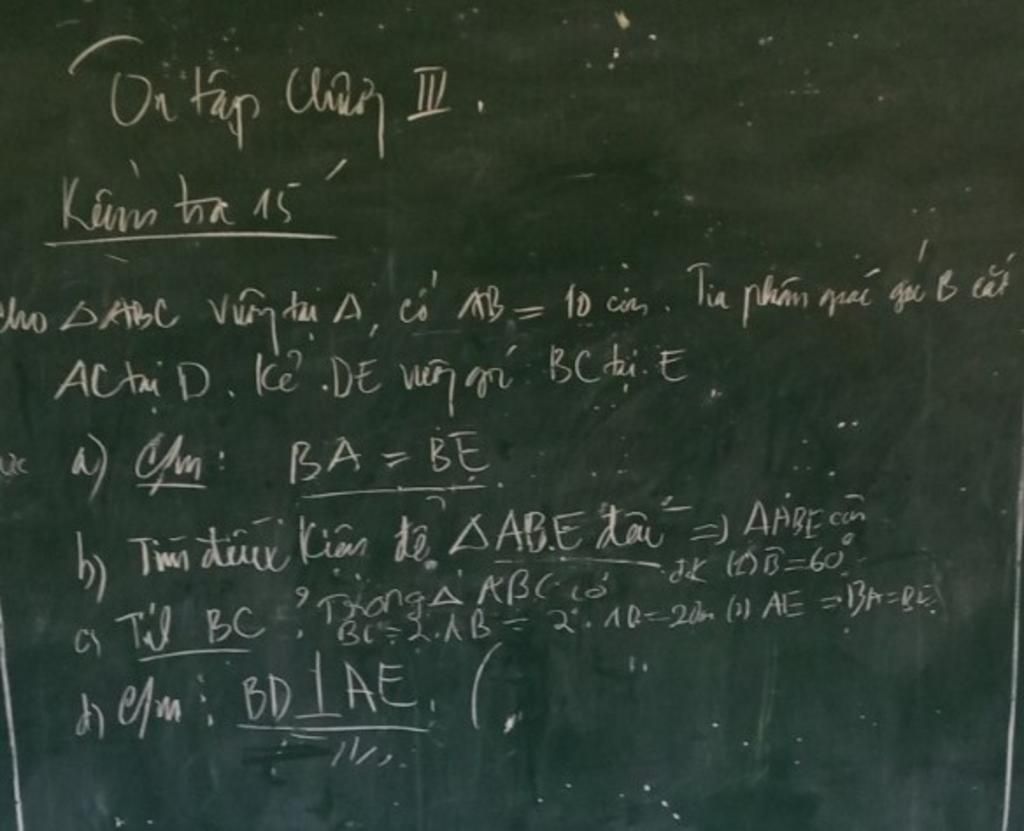 Ôn tập Chương III.
Kiểm tra 15'
Cho △ABC vuông tại A, có AB = 10 cm. Tia phân giác góc B cắt
AC tại D. Kẻ DE vuông góc BC tại E
a) C/m: BA = BE
b) Tìm điều kiện để △ABE đều => △ABE cân
đk (1) B = 60°
c) Tính BC? Trong △ ABC có
BC = 2.AB = 2. 10 = 20cm (2) AE => BA = BE
d) C/m: BD ⊥ AE. (